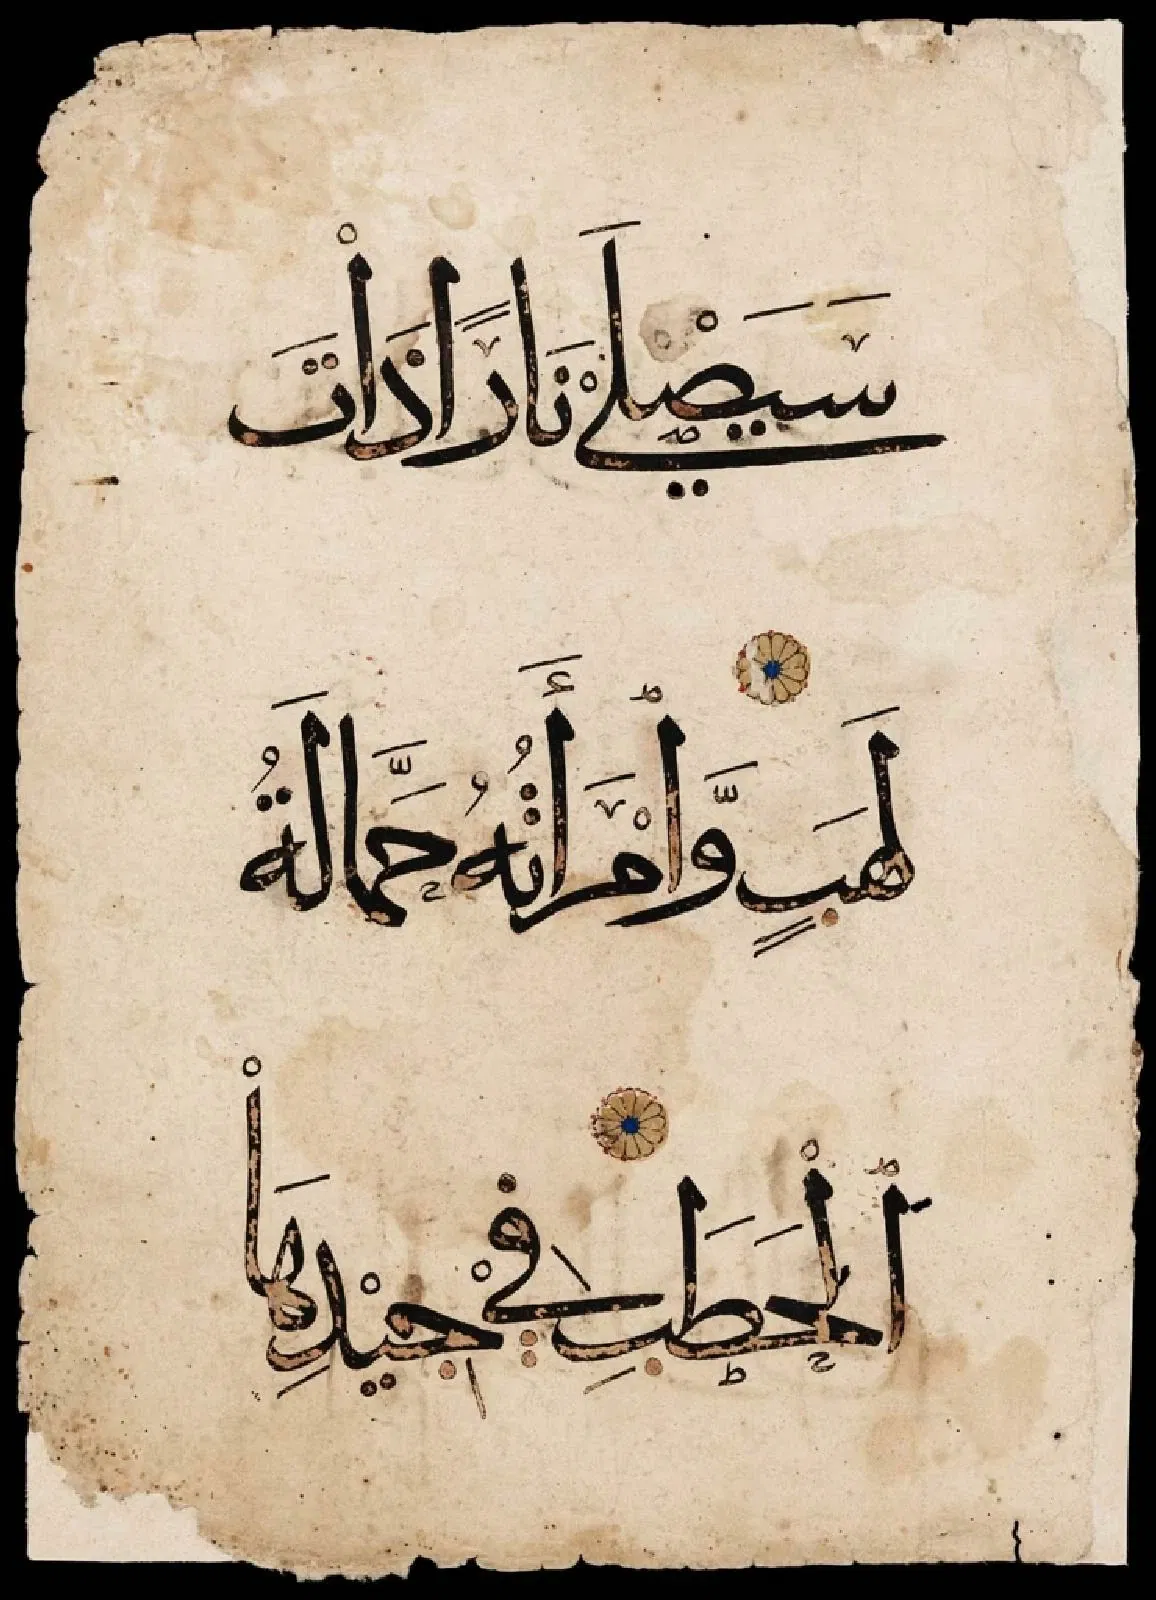 سَيَصْلَىٰ نَارًا ذَاتَ
لَهَبٍ وَّٱمْرَأَتُهُ حَمَّالَةُ
ٱلْحَطَبِ فِي جِيْدِهَا